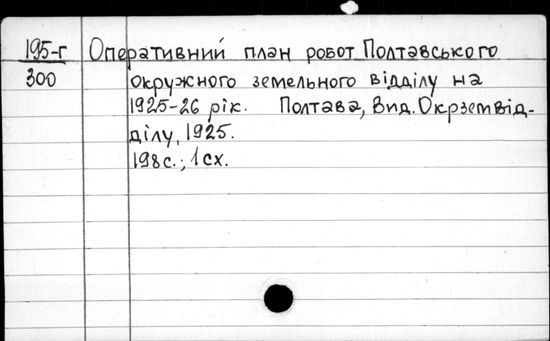 195-г Оперативний план робот Полтавського
300 окружного земельного відділу на
1925-26 рік. Полтава, Вид. Окрземвід-
ділу, 1925.
198с.; 1 сх.